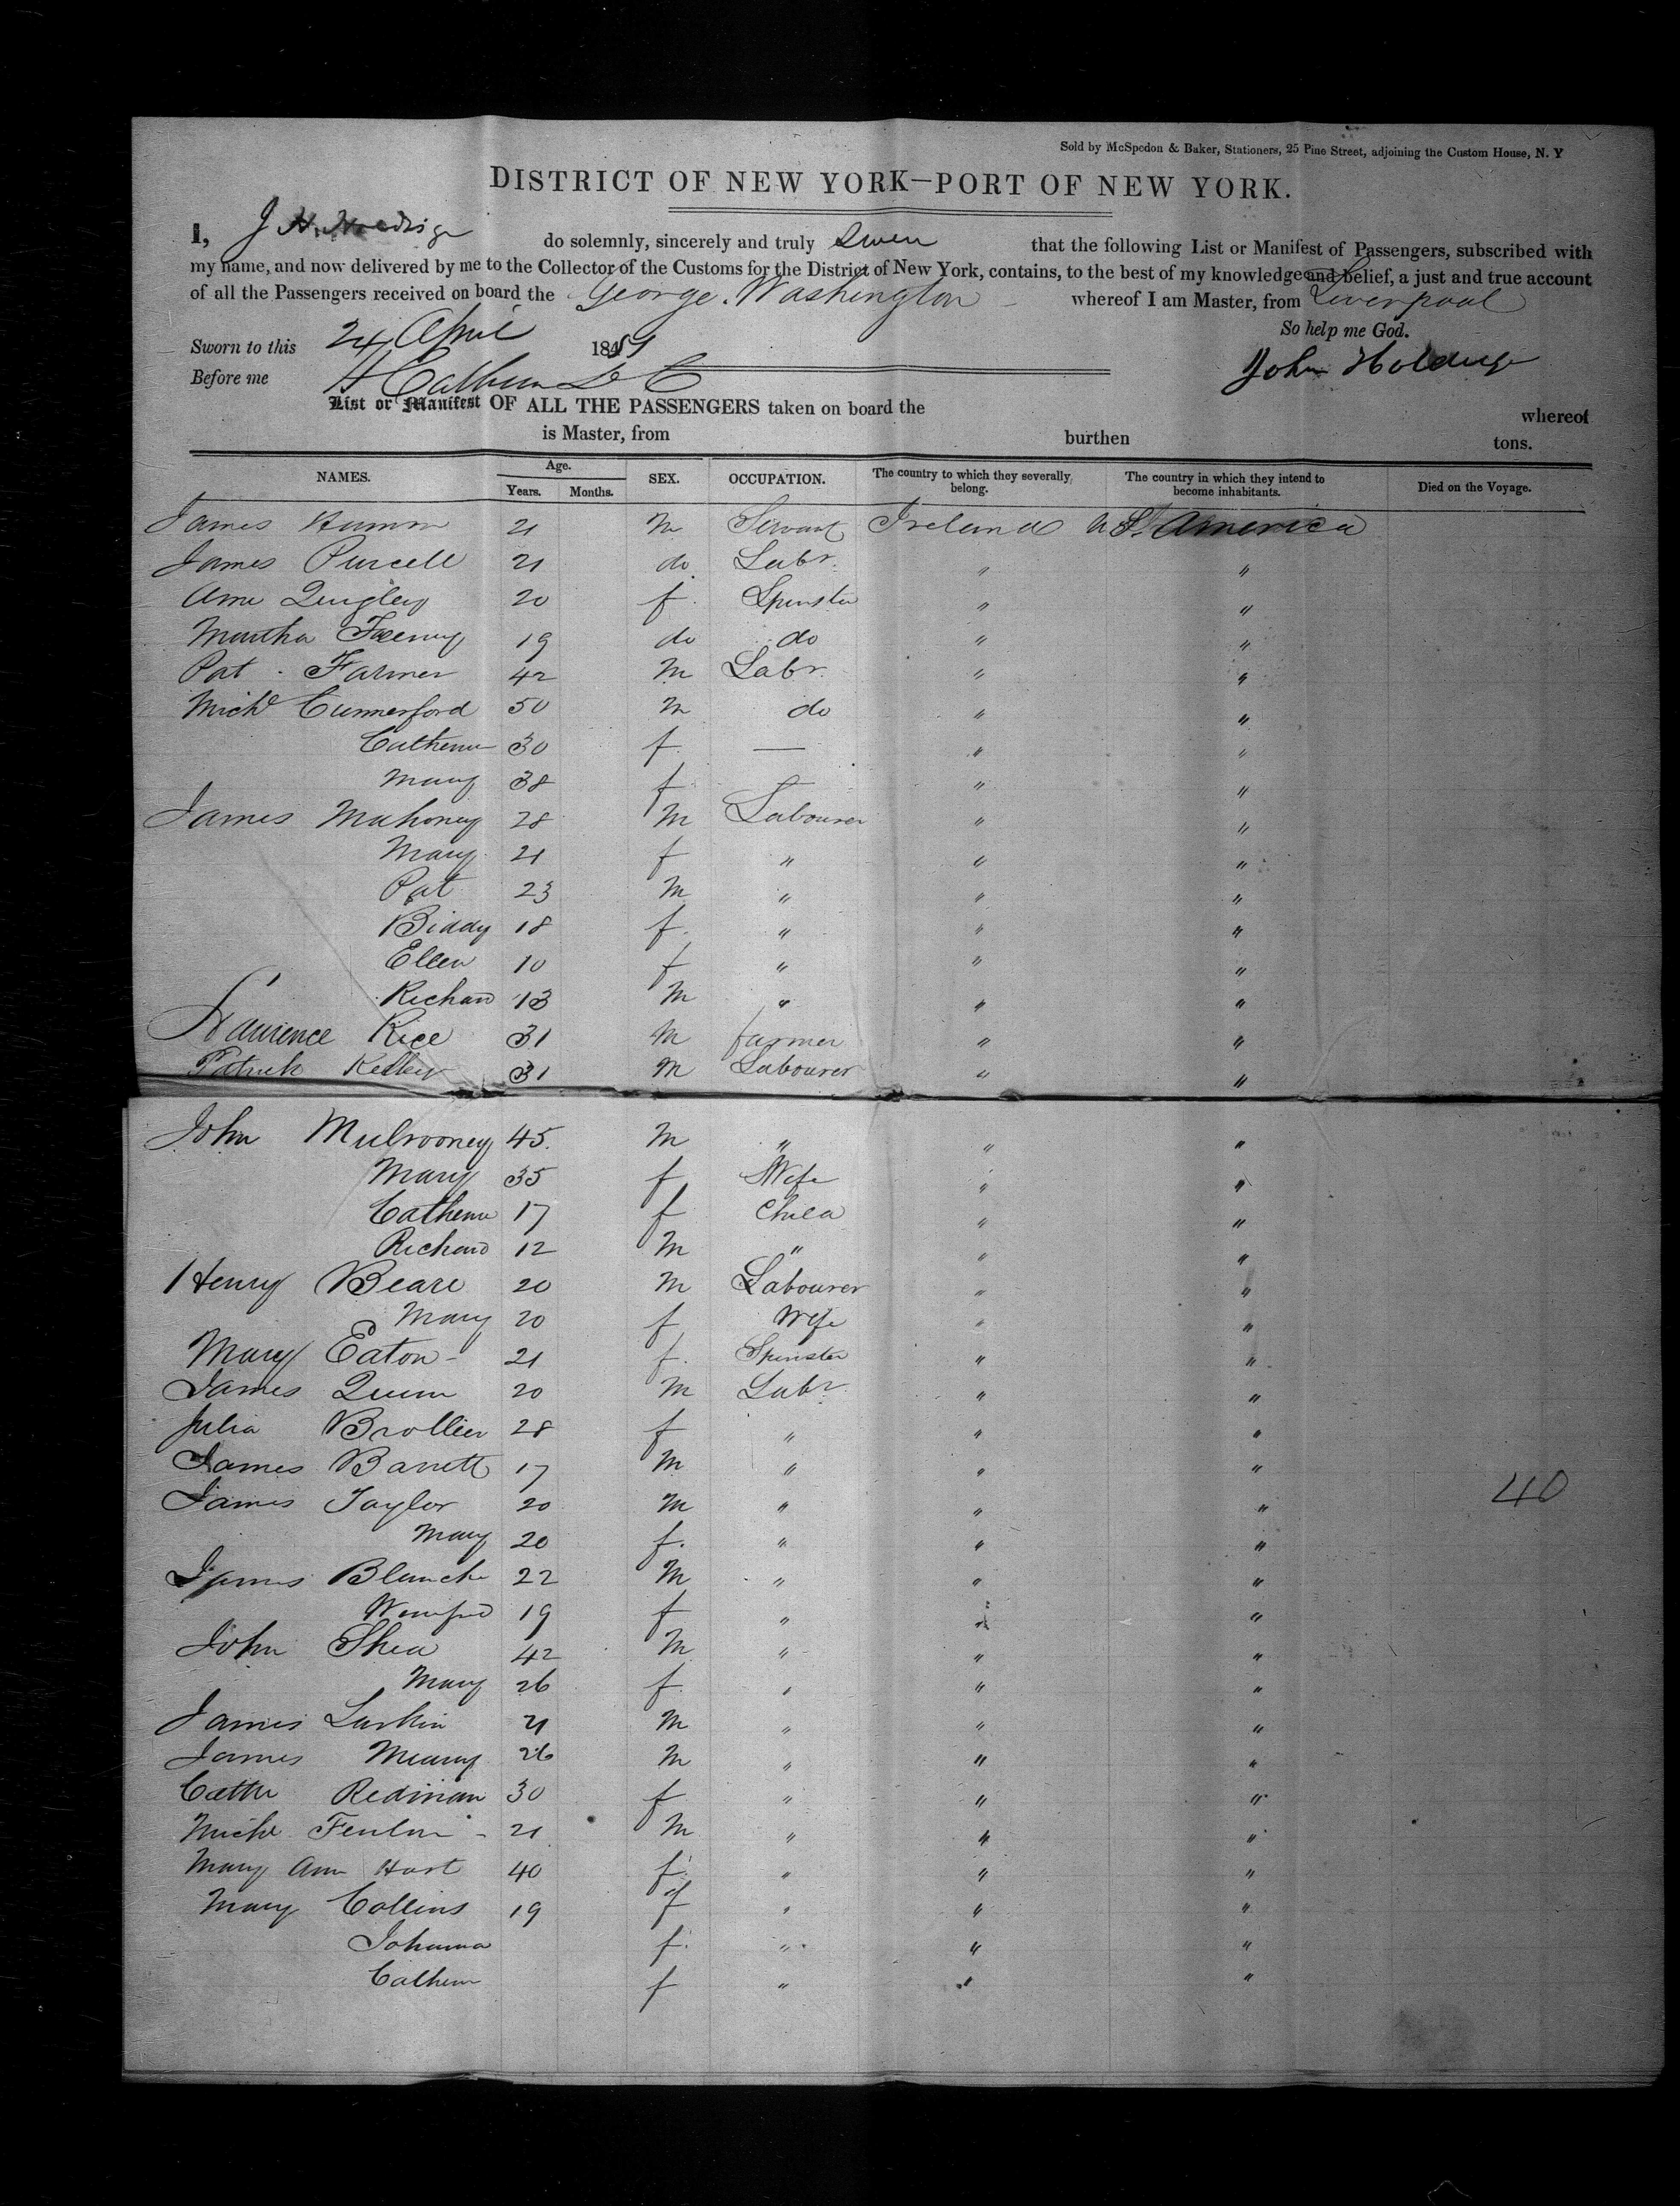 Sold by McSpedon & Baker, Stationers, 25 Pine Street, adjoining the Custom House, N. Y
DISTRICT OF NEW YORK—PORT OF NEW YORK.
I, J H. do solemnly, sincerely and truly that the following List or Manifest of Passengers, subscribed with
my name, and now delivered by me to the Collector of the Customs for the District of New York, contains, to the best of my knowledge and belief, a just and true account
of all the Passengers received on board the George Washington whereof I am Master, from Liverpool
So help me God.
Sworn to this 24 April 18
Before me John
List or Manifest OF ALL THE PASSENGERS taken on board the whereof
is Master, from burthen tons.
NAMES. Age. Years. Months. SEX. OCCUPATION. The country to which they severally belong. The country in which they intend to become inhabitants. Died on the Voyage.
James 21 m Servant Ireland U St. America
James Purcell 21 do Labr. " "
Ann Quigley 20 f. Spinster " "
Martha 19 do do " "
Pat. Farmer 42 m Labr. " "
Michl Cummerford 50 m do " "
Catherine 30 f. — " "
Mary 38 f — " "
James Mahoney 28 m Labourer " "
Mary 21 f " " "
Pat 23 m " " "
Biddy 18 f. " " "
Ellen 10 f " " "
Richard 13 m " " "
Laurence Rice 31 m farmer " "
Patrick Kelley 31 m Labourer " "
John Mulrooney 45. m " " "
Mary 35 f Wife " "
Catherine 17 f Child " "
Richard 12 m " " "
Henry Beare 20 m Labourer " "
Mary 20 f Wife " "
Mary Eaton - 21 f. Spinster " "
James Quinn 20 m Labr. " "
Julia 28 f " " "
James Barrett 17 m " " "
James Taylor 20 m " " " 40
Mary 20 f. " " "
James 22 m " " "
Winifred 19 f " " "
John Shea 42 m " " "
Mary 26 f. " " "
James Larkin 21 m " " "
James 26 m " " "
Cathe 30 f " " "
Michl 21 m " " "
Mary Ann Hart 40 f. " " "
Mary Collins 19 f " " "
Johanna f. " " "
Cathern f " " "